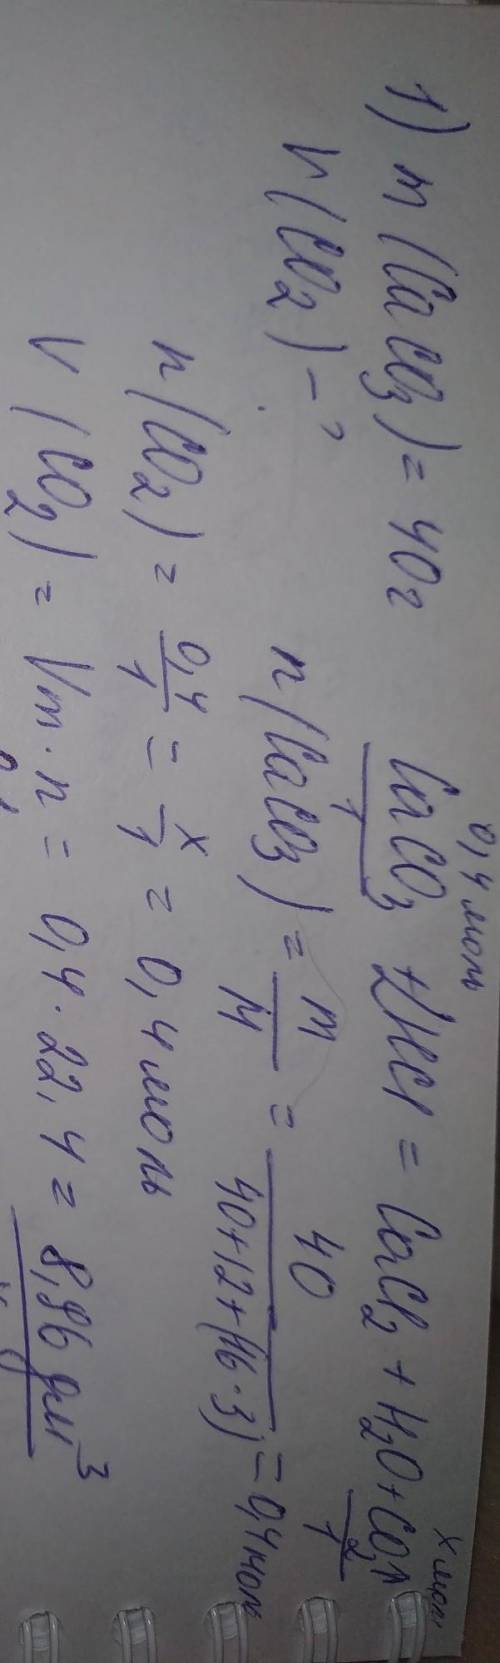 1) m(CaCO₃) = 40г
0,4 моль х моль
CaCO₃ + 2HCl = CaCl₂ + H₂O + CO₂↑
1 1
V(CO₂) - ?
n(CaCO₃) = m/M = 40/(40+12+(16·3)) = 0,4 моль
n(CO₂) = 0,4/1 = x/1 = 0,4 моль
V(CO₂) = Vm·n = 0,4·22,4 = 8,96 дм³